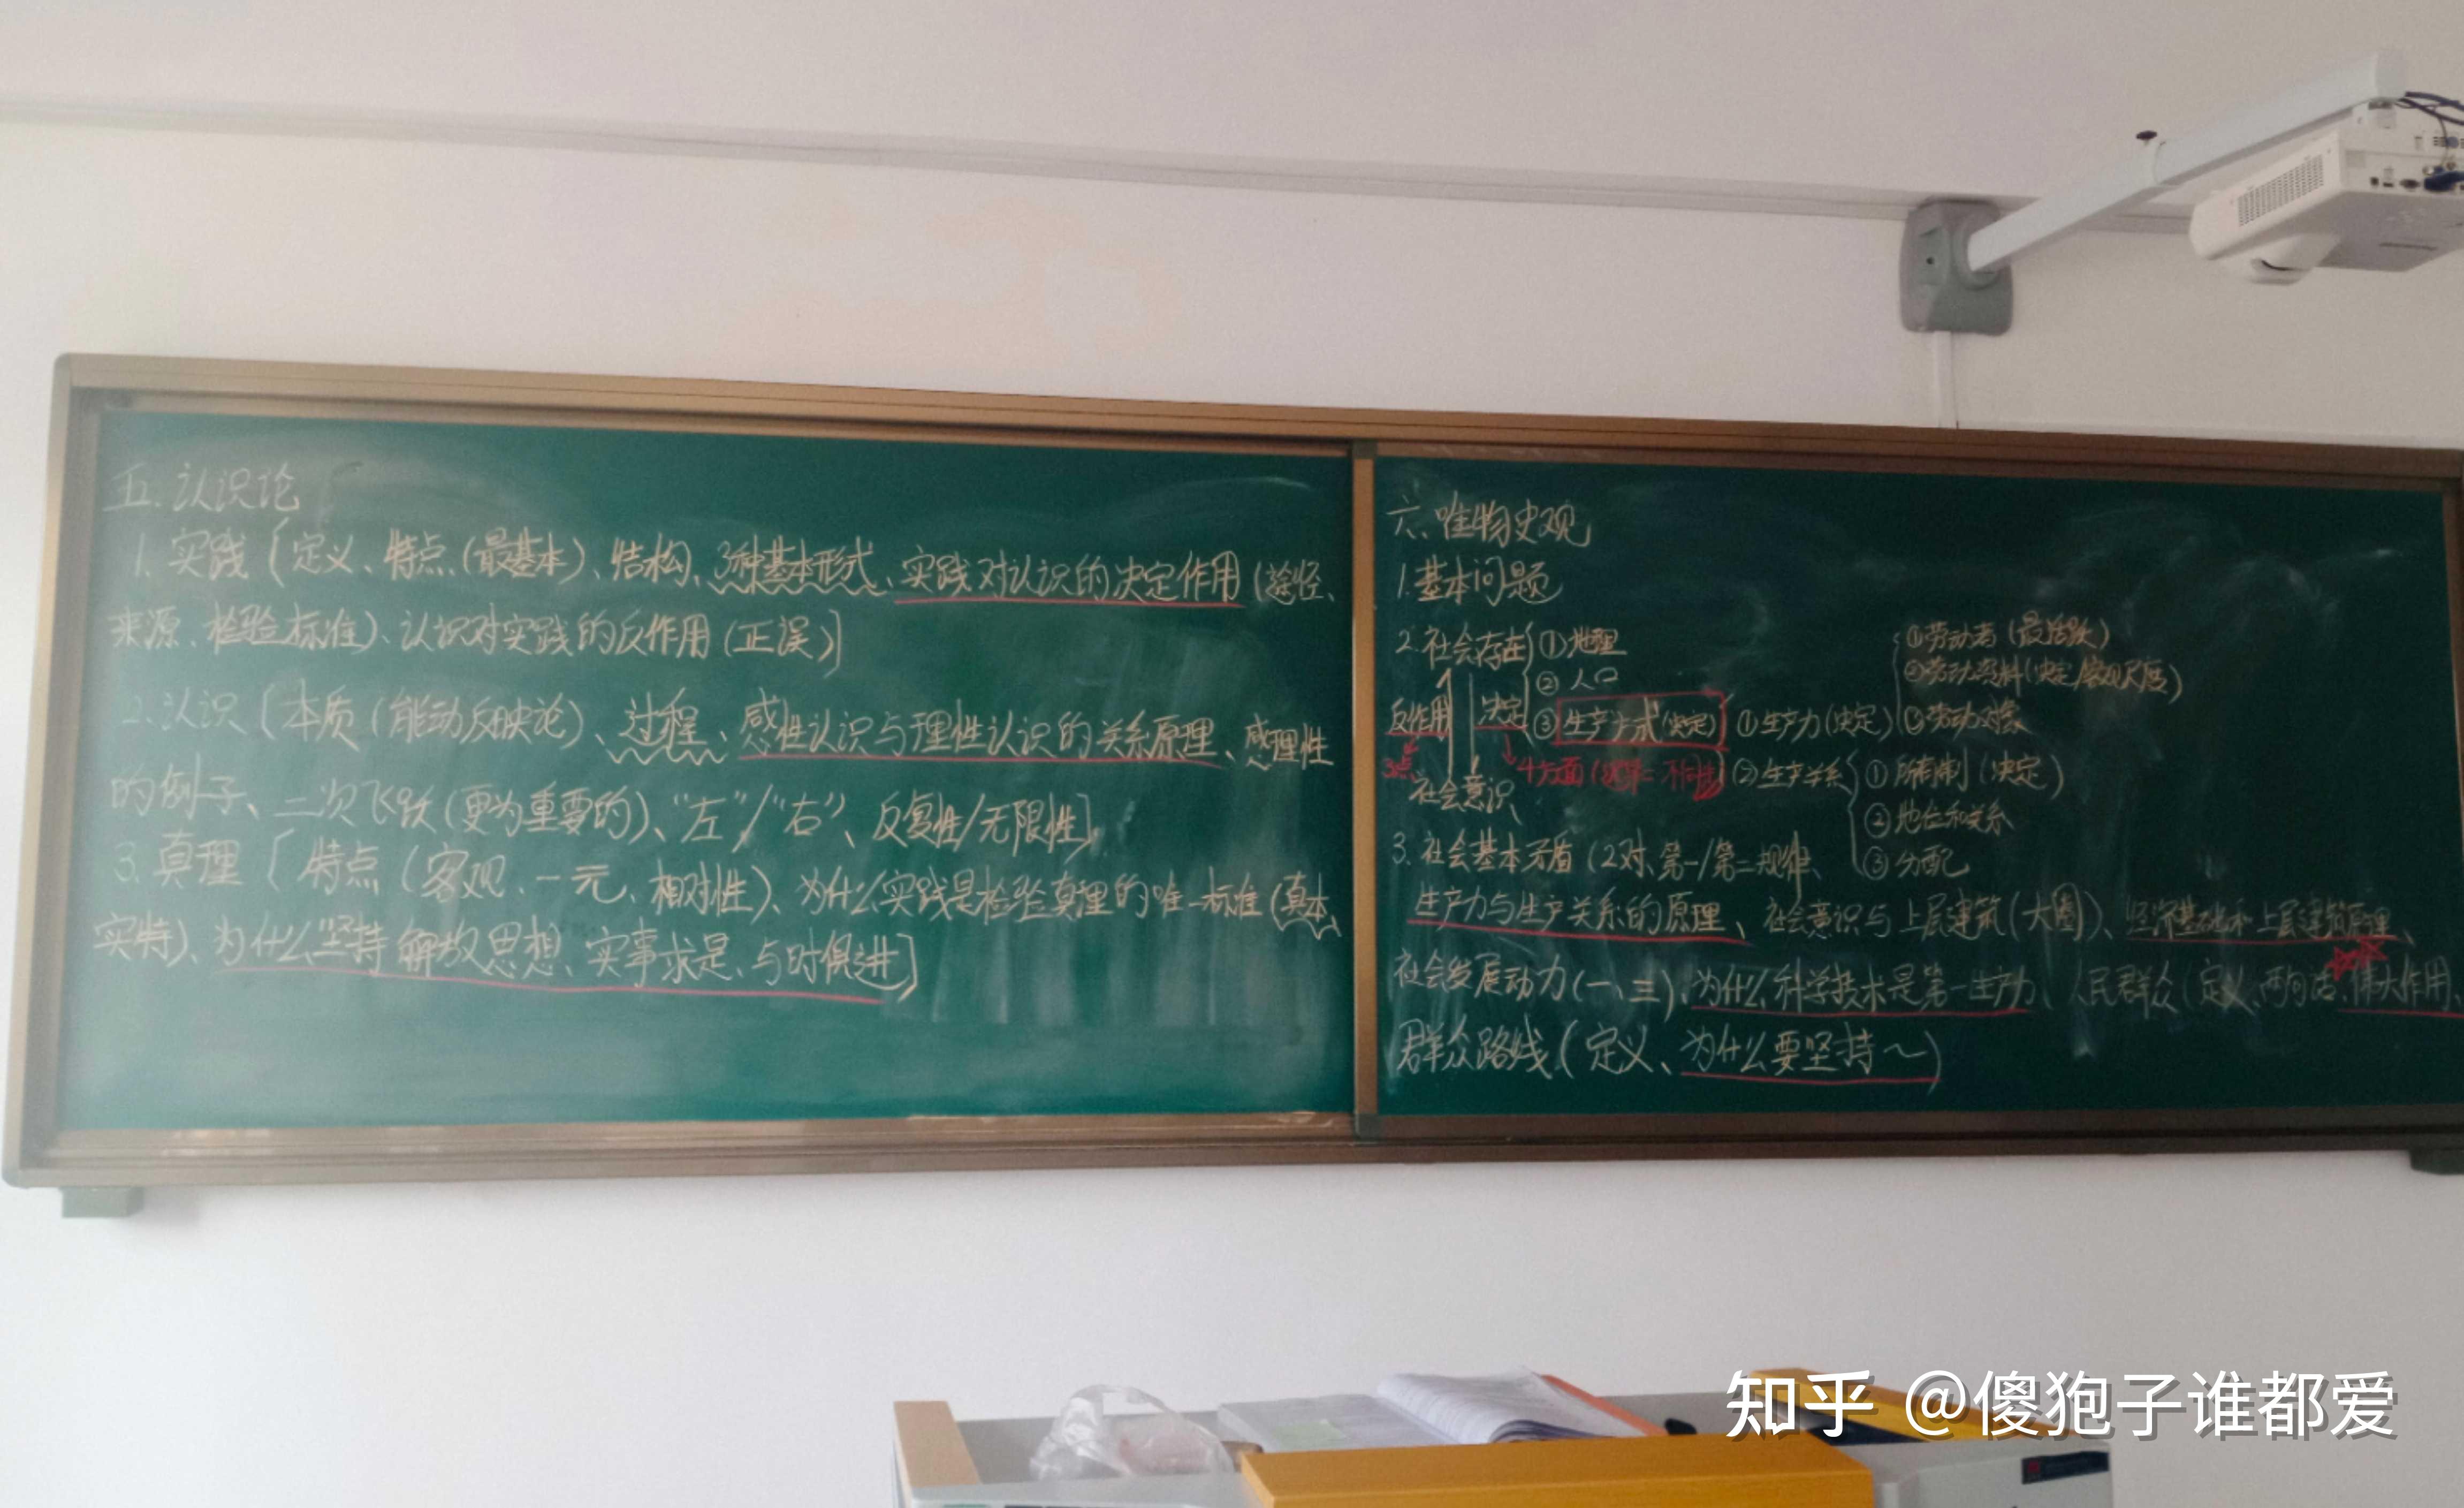 五.认识论
1.实践[定义、特点(最基本)、结构、3种基本形式、实践对认识的决定作用(途径、
来源、检验标准)、认识对实践的反作用(正误)]
2.认识[本质(能动反映论)、过程、感性认识与理性认识的关系原理、感理性
的例子、二次飞跃(更为重要的)、“左”/“右”、反复性/无限性]
3.真理[特点(客观、一元、相对性)、为什么实践是检验真理的唯一标准(真本、
实特)、为什么坚持解放思想、实事求是、与时俱进]
六.唯物史观
1.基本问题
2.社会存在
①地理
②人口
③生产方式(决定)
①生产力(决定)
①劳动者(最活跃)
②劳动资料(决定/客观尺度)
③劳动对象
②生产关系
①所有制(决定)
②地位和关系
③分配
反作用
决定
3点
4方面
社会意识
3.社会基本矛盾(2对、第一/第二规律、
生产力与生产关系的原理、社会意识与上层建筑(大圈)、经济基础和上层建筑原理、
社会发展动力(一、三)、为什么科学技术是第一生产力、人民群众(定义、两句话、伟大作用、
群众路线(定义、为什么要坚持~)
知乎 @傻狍子谁都爱